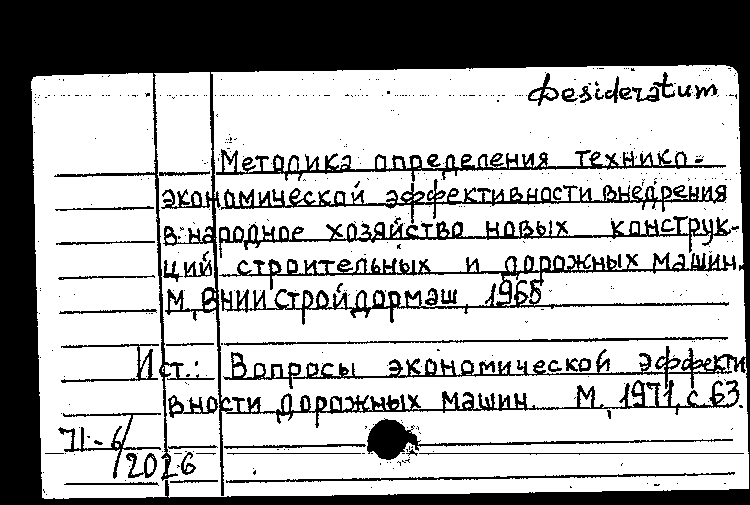 Desideratum
Методика определения технико-
экономической эффективности внедрения
в народное хозяйство новых конструк-
ций строительных и дорожных машин.
М., ВНИИСтройдормаш, 1965
Ист.: Вопросы экономической эффекти
вности дорожных машин. М., 1971, с. 63.
71-6/
2026